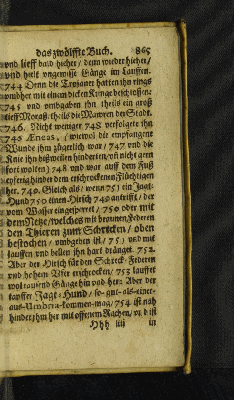 das zwölffte Buch. 865
und lieff bald hieher / denn wieder hieher /
und hielt ungewisse Gänge im Lauffen.
744 Denn die Trojaner hatten ihn rings
umbher mit einem dicken Ringe beschlossen:
745 und umbgaben ihn theils ein groß
tieff Moraß / theils die Mauren der Stadt.
746. Nicht weniger 748 verfolgete ihn
746 Æneas, / wiewol die empfangene
Wunde ihm zugetlich war / 747 und die
Knie ihn bißweilen hinderten / uñ nicht gern
fort wolten) 748 und war auff dem Fuß
eyferig hinder dem erschrockenen Flüchtigen
her. 749. Gleich als / wenn 751 ein Jagt-
Hund 750 einen Hirsch 749 antrifft / der
vom Wasser eingesperret / 750 oder mit
dem Netze / welches mit bronnen Federen
den Thieren zum Schrecken / oben
bestochen / umbgeben ist / 751 und mit
lauffen und bellen ihn hart dränget. 752.
Aber der Hirsch für den Schreck-Federen
und hohem Ufer erschrocken / 753 lauffet
wol tausend Gänge hin und her: Aber der
tapffer Jagt-Hund / so-gut-als-einer-
aus-Umbria-kommen-mag / 754 ist nah
hinder ihm her mit offenem Rachen / und ist
Hhh iiij in